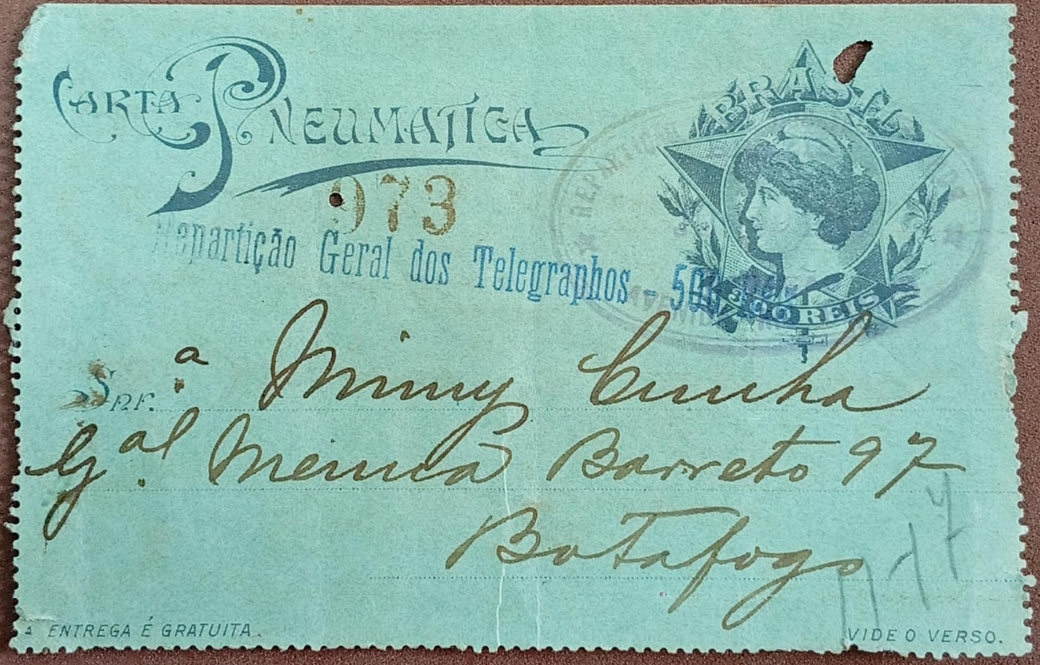 CARTA PNEUMATICA
BRASIL
973
Repartição Geral dos Telegraphos - 500 réis
300 REIS
Snr.ª Mimy Cunha
G.al Menna Barreto 97
Botafogo
A ENTREGA É GRATUITA.
VIDE O VERSO.